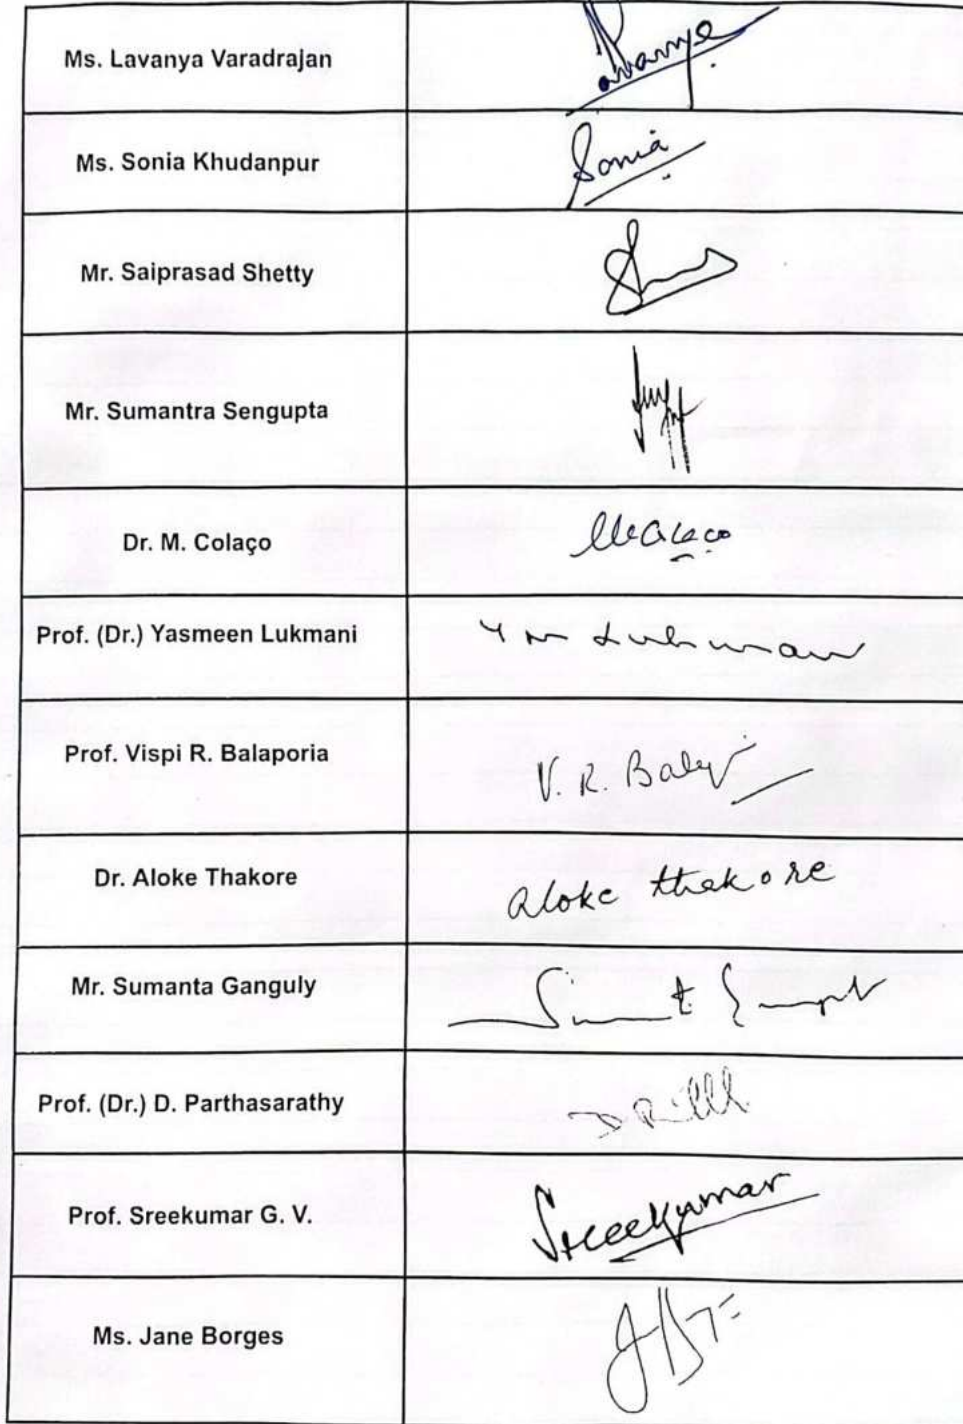 Ms. Lavanya Varadrajan
Lavanya
Ms. Sonia Khudanpur
Sonia
Mr. Saiprasad Shetty
Mr. Sumantra Sengupta
Dr. M. Colaço
MColaco
Prof. (Dr.) Yasmeen Lukmani
Prof. Vispi R. Balaporia
V. R.
Dr. Aloke Thakore
aloke thakore
Mr. Sumanta Ganguly
Prof. (Dr.) D. Parthasarathy
Prof. Sreekumar G. V.
Sreekumar
Ms. Jane Borges